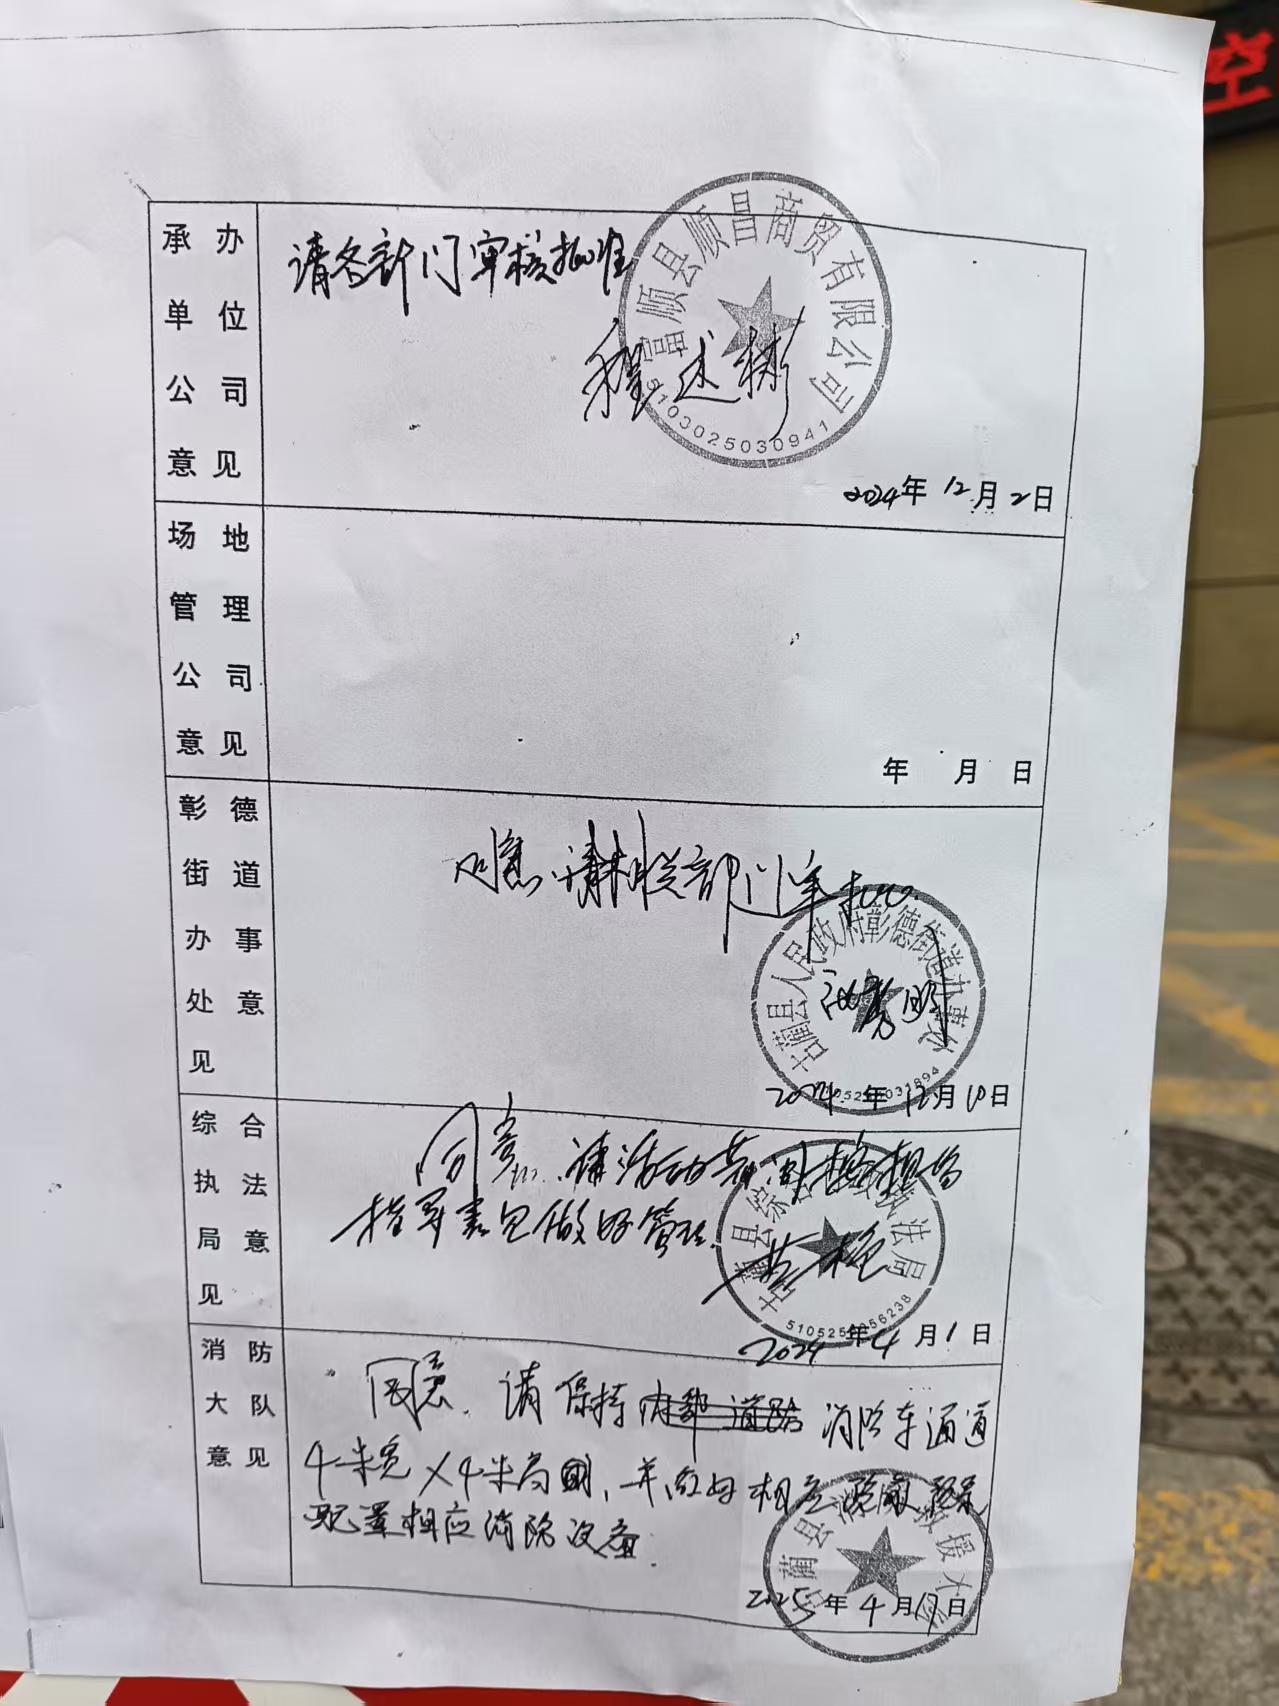 空
承办
单位
公司
意见
请各部门审核批准
富顺县顺昌商贸有限公司
5103025030941
程述彬
2024年12月2日
场地
管理
公司
意见
年 月 日
彰德
街道
办事
处意
见
同意.请相关部门审批
古蔺县人民政府彰德街道办事处
2024年12月10日
综合
执法
局意
见
同意.请活动
做好管理.
古蔺县综合执法局
2024年4月1日
消防
大队
意见
同意.请保持内部道防消防车通道
4米宽×4米高
配置相应消防设备.
古蔺县消防救援大队
2025年4月17日